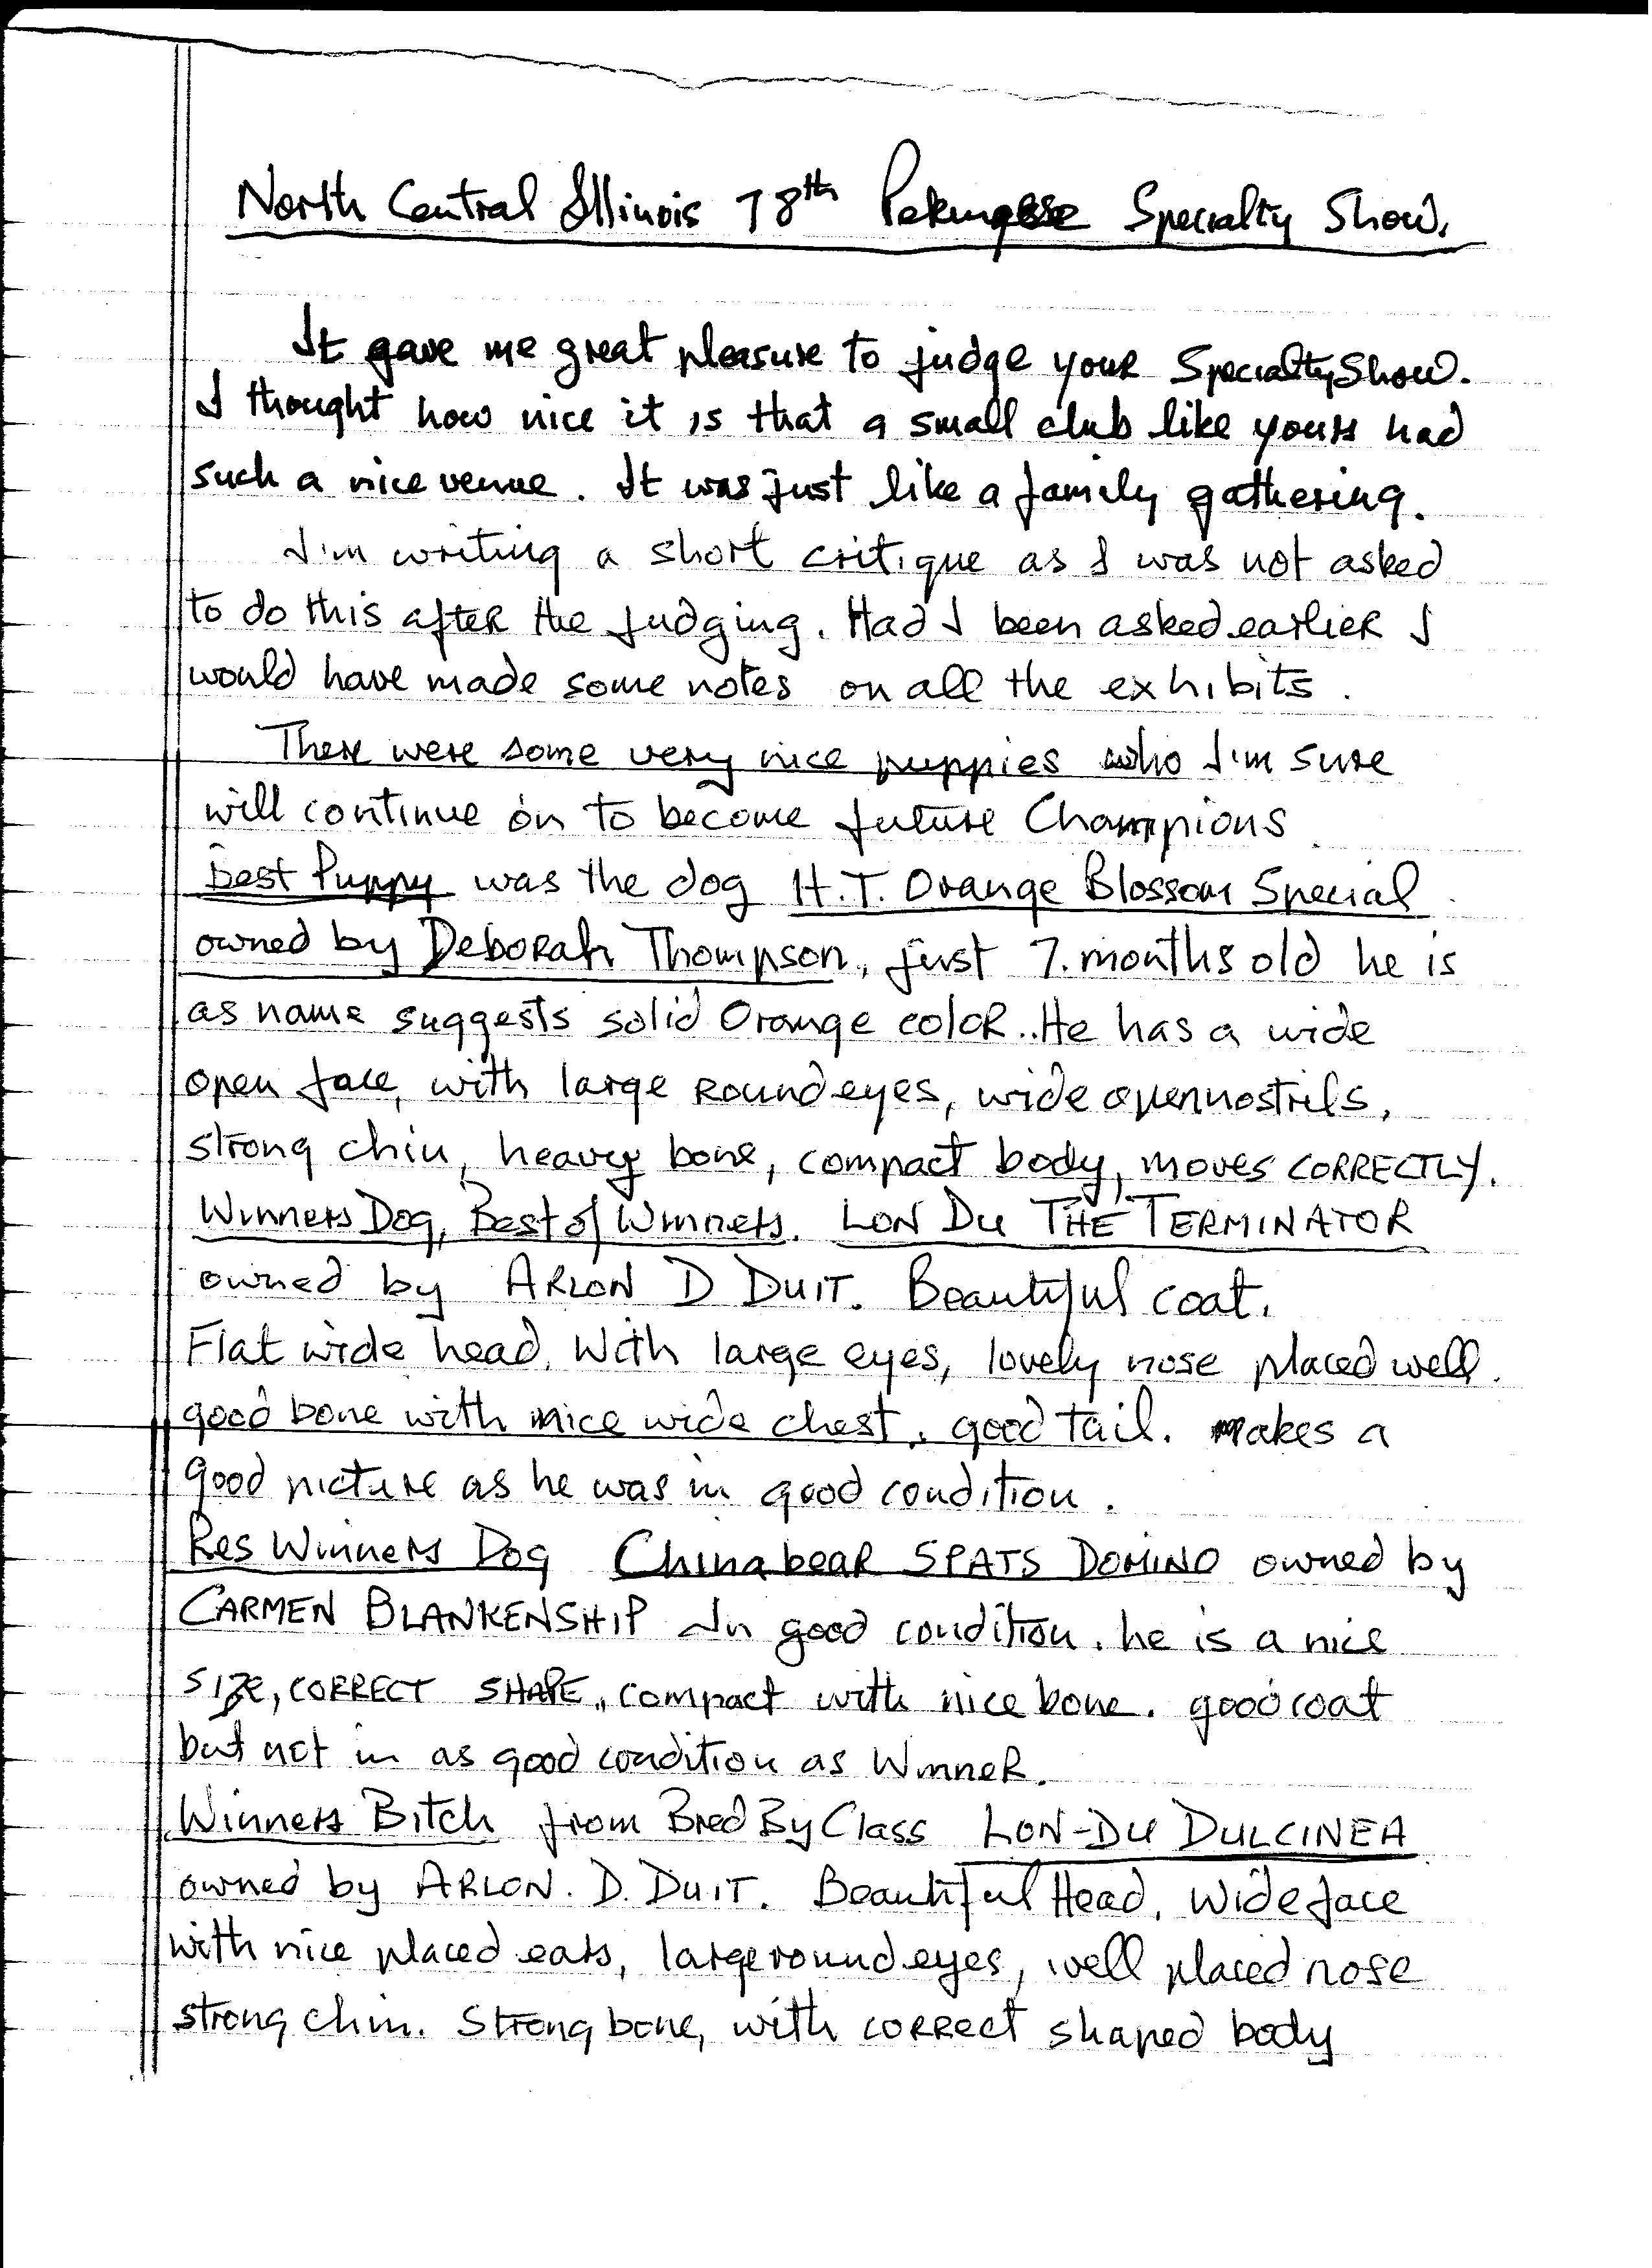 North Central Illinois 78th Pekingese Specialty Show.
It gave me great pleasure to judge your Specialty Show.
I thought how nice it is that a small club like yours had
such a nice venue. It was just like a family gathering.
I'm writing a short critique as I was not asked
to do this after the judging. Had I been asked earlier I
would have made some notes on all the exhibits.
There were some very nice puppies who I'm sure
will continue on to become future Champions
Best Puppy was the dog H.T. Orange Blossom Special
owned by Deborah Thompson, just 7. months old he is
as name suggests solid Orange color.. He has a wide
open face, with large round eyes, wide open nostrils,
strong chin, heavy bone, compact body, moves CORRECTLY.
Winners Dog, Best of Winners. LON DU THE TERMINATOR
owned by ARLON D DUIT. Beautiful coat.
Flat wide head. With large eyes, lovely nose placed well.
good bone with nice wide chest. good tail. makes a
good picture as he was in good condition.
Res Winners Dog Chinabear SPATS DOMINO owned by
CARMEN BLANKENSHIP In good condition. he is a nice
SIZE, CORRECT SHAPE, compact with nice bone. good coat
but not in as good condition as Winner.
Winners Bitch from Bred By Class LON-DU DULCINEA
owned by ARLON. D. DUIT. Beautiful Head, Wide face
with nice placed ears, large round eyes, well placed nose
strong chin. Strong bone, with correct shaped body